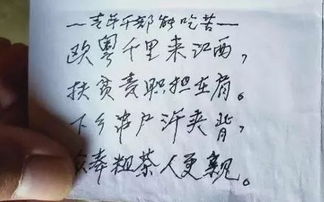 干部能吃苦
欧粤千里来江西，
扶贫责职担在肩。
下乡串户汗夹背，
奉粗茶人更亲。